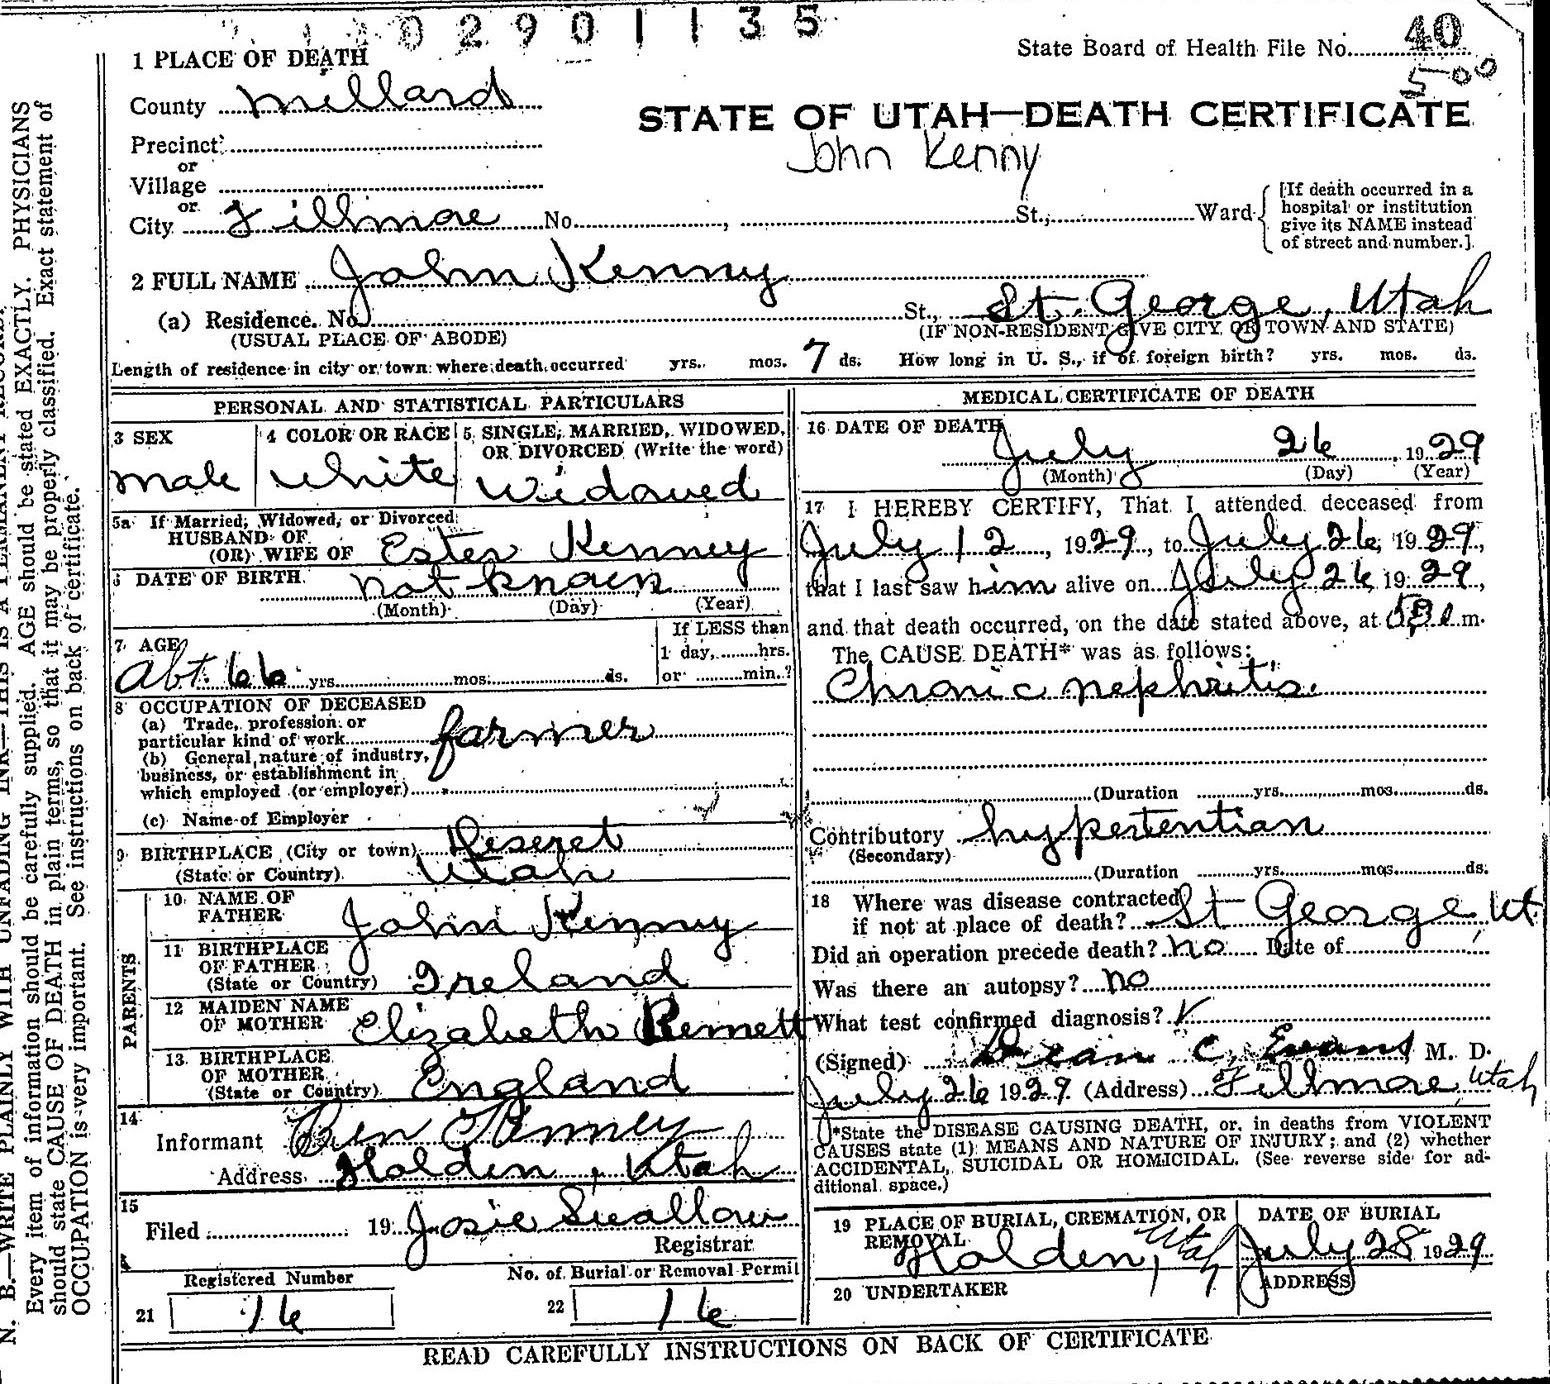 02901135
State Board of Health File No. 40
500
1 PLACE OF DEATH
County Millard
STATE OF UTAH—DEATH CERTIFICATE
John Kenny
Precinct
or
Village
or
City Fillmore No. , St., Ward
[If death occurred in a
hospital or institution
give its NAME instead
of street and number.]
2 FULL NAME John Kenny
(a) Residence. No. St., St. George, Utah
(USUAL PLACE OF ABODE) (IF NON-RESIDENT GIVE CITY OR TOWN AND STATE)
Length of residence in city or town where death occurred yrs. mos. 7 ds. How long in U. S., if of foreign birth? yrs. mos. ds.
PERSONAL AND STATISTICAL PARTICULARS
3 SEX
male
4 COLOR OR RACE
White
5 SINGLE, MARRIED, WIDOWED,
OR DIVORCED (Write the word)
Widowed
5a If Married, Widowed, or Divorced
HUSBAND OF
(OR) WIFE OF Ester Kenney
6 DATE OF BIRTH not known
(Month) (Day) (Year)
7 AGE
Abt. 66 yrs. mos. ds.
If LESS than
1 day, hrs.
or min.?
8 OCCUPATION OF DECEASED
(a) Trade, profession or
particular kind of work farmer
(b) General nature of industry,
business, or establishment in
which employed (or employer)
(c) Name of Employer
9 BIRTHPLACE (City or town) Deseret
(State or Country) Utah
PARENTS
10 NAME OF
FATHER John Kenny
11 BIRTHPLACE
OF FATHER
(State or Country) Ireland
12 MAIDEN NAME
OF MOTHER Elizabeth Bennett
13 BIRTHPLACE
OF MOTHER
(State or Country) England
14
Informant Ben Kenney
Address Holden, Utah
15
Filed 19 Josie Swallow
Registrar
Registered Number
21 16
No. of Burial or Removal Permit
22 16
MEDICAL CERTIFICATE OF DEATH
16 DATE OF DEATH
July 26, 1929
(Month) (Day) (Year)
17 I HEREBY CERTIFY, That I attended deceased from
July 12, 1929, to July 26, 1929,
that I last saw him alive on July 26 1929,
and that death occurred, on the date stated above, at m.
The CAUSE DEATH* was as follows:
Chronic nephritis.
(Duration yrs. mos. ds.
Contributory hypertention
(Secondary)
(Duration yrs. mos. ds.
18 Where was disease contracted
if not at place of death? St George, Ut
Did an operation precede death? no Date of
Was there an autopsy? no
What test confirmed diagnosis?
(Signed) Dean C. Evans, M. D.
July 26 1929. (Address) Fillmore, Utah
*State the DISEASE CAUSING DEATH, or, in deaths from VIOLENT
CAUSES state (1) MEANS AND NATURE OF INJURY; and (2) whether
ACCIDENTAL, SUICIDAL OR HOMICIDAL. (See reverse side for ad-
ditional space.)
19 PLACE OF BURIAL, CREMATION, OR
REMOVAL
Holden, Utah
DATE OF BURIAL
July 28 1929
20 UNDERTAKER
ADDRESS
READ CAREFULLY INSTRUCTIONS ON BACK OF CERTIFICATE
N. B.—WRITE PLAINLY WITH UNFADING INK—THIS IS A PERMANENT RECORD.
Every item of information should be carefully supplied. AGE should be stated EXACTLY. PHYSICIANS
should state CAUSE OF DEATH in plain terms, so that it may be properly classified. Exact statement of
OCCUPATION is very important. See instructions on back of certificate.